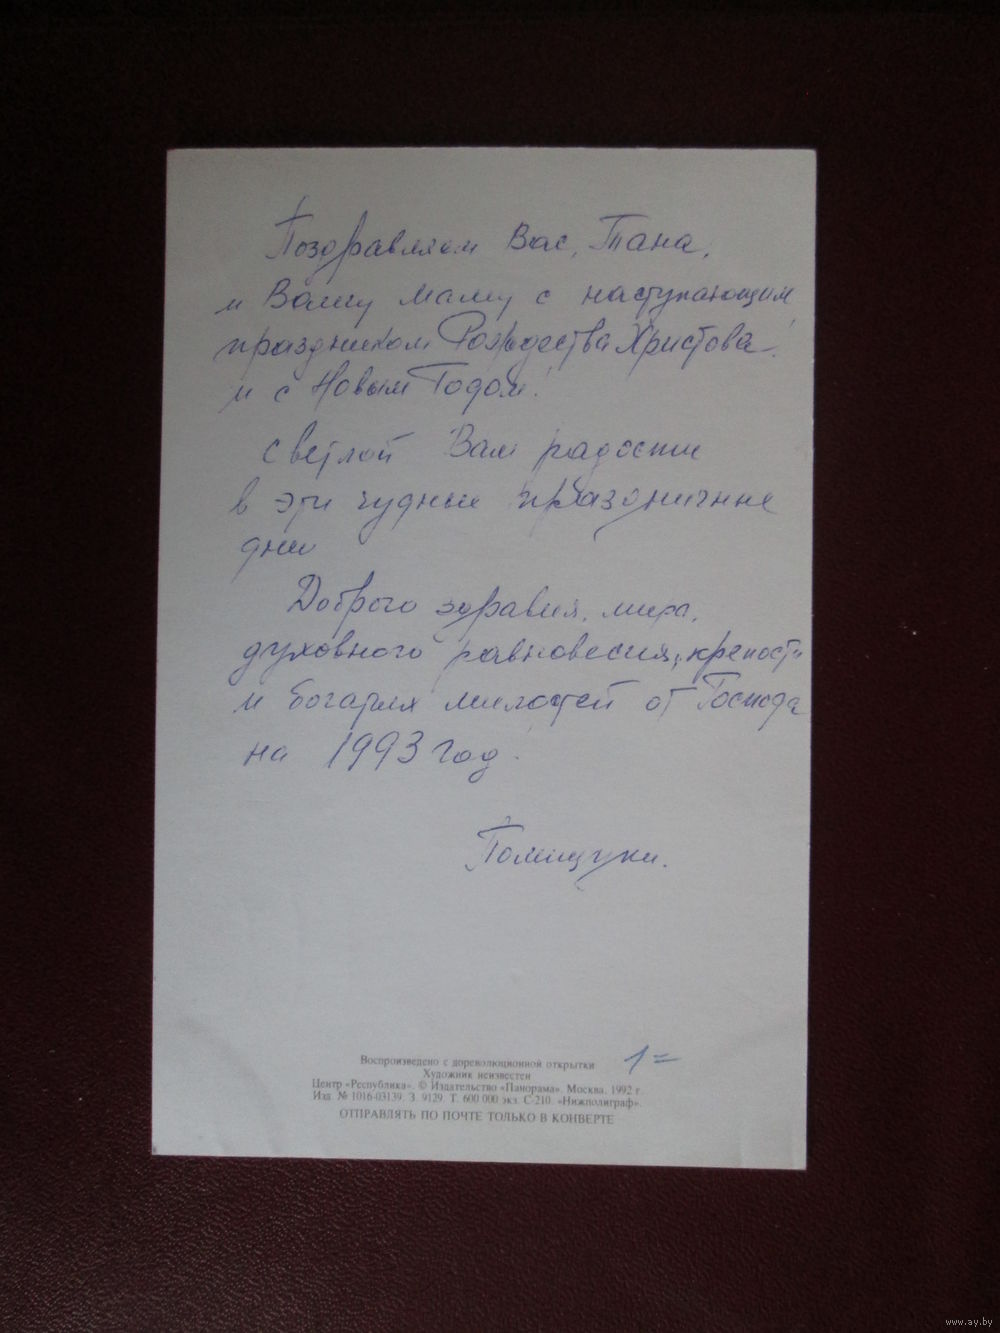 Поздравляем Вас, Тана,
и Вашу маму с наступающим
праздником Рождества Христова
и с Новым Годом!
светлой Вам радости
в эти чудные праздничные
дни
Доброго здравия, мира,
духовного равновесия, крепости
и богатых милостей от Господа
на 1993 год.
Полищуки.
1=
Воспроизведено с дореволюционной открытки
Художник неизвестен
Центр «Республика». © Издательство «Панорама». Москва. 1992 г.
Изд. № 1016-03139. З. 9129. Т. 600 000 экз. С-210. «Нижполиграф».
ОТПРАВЛЯТЬ ПО ПОЧТЕ ТОЛЬКО В КОНВЕРТЕ
www.ay.by